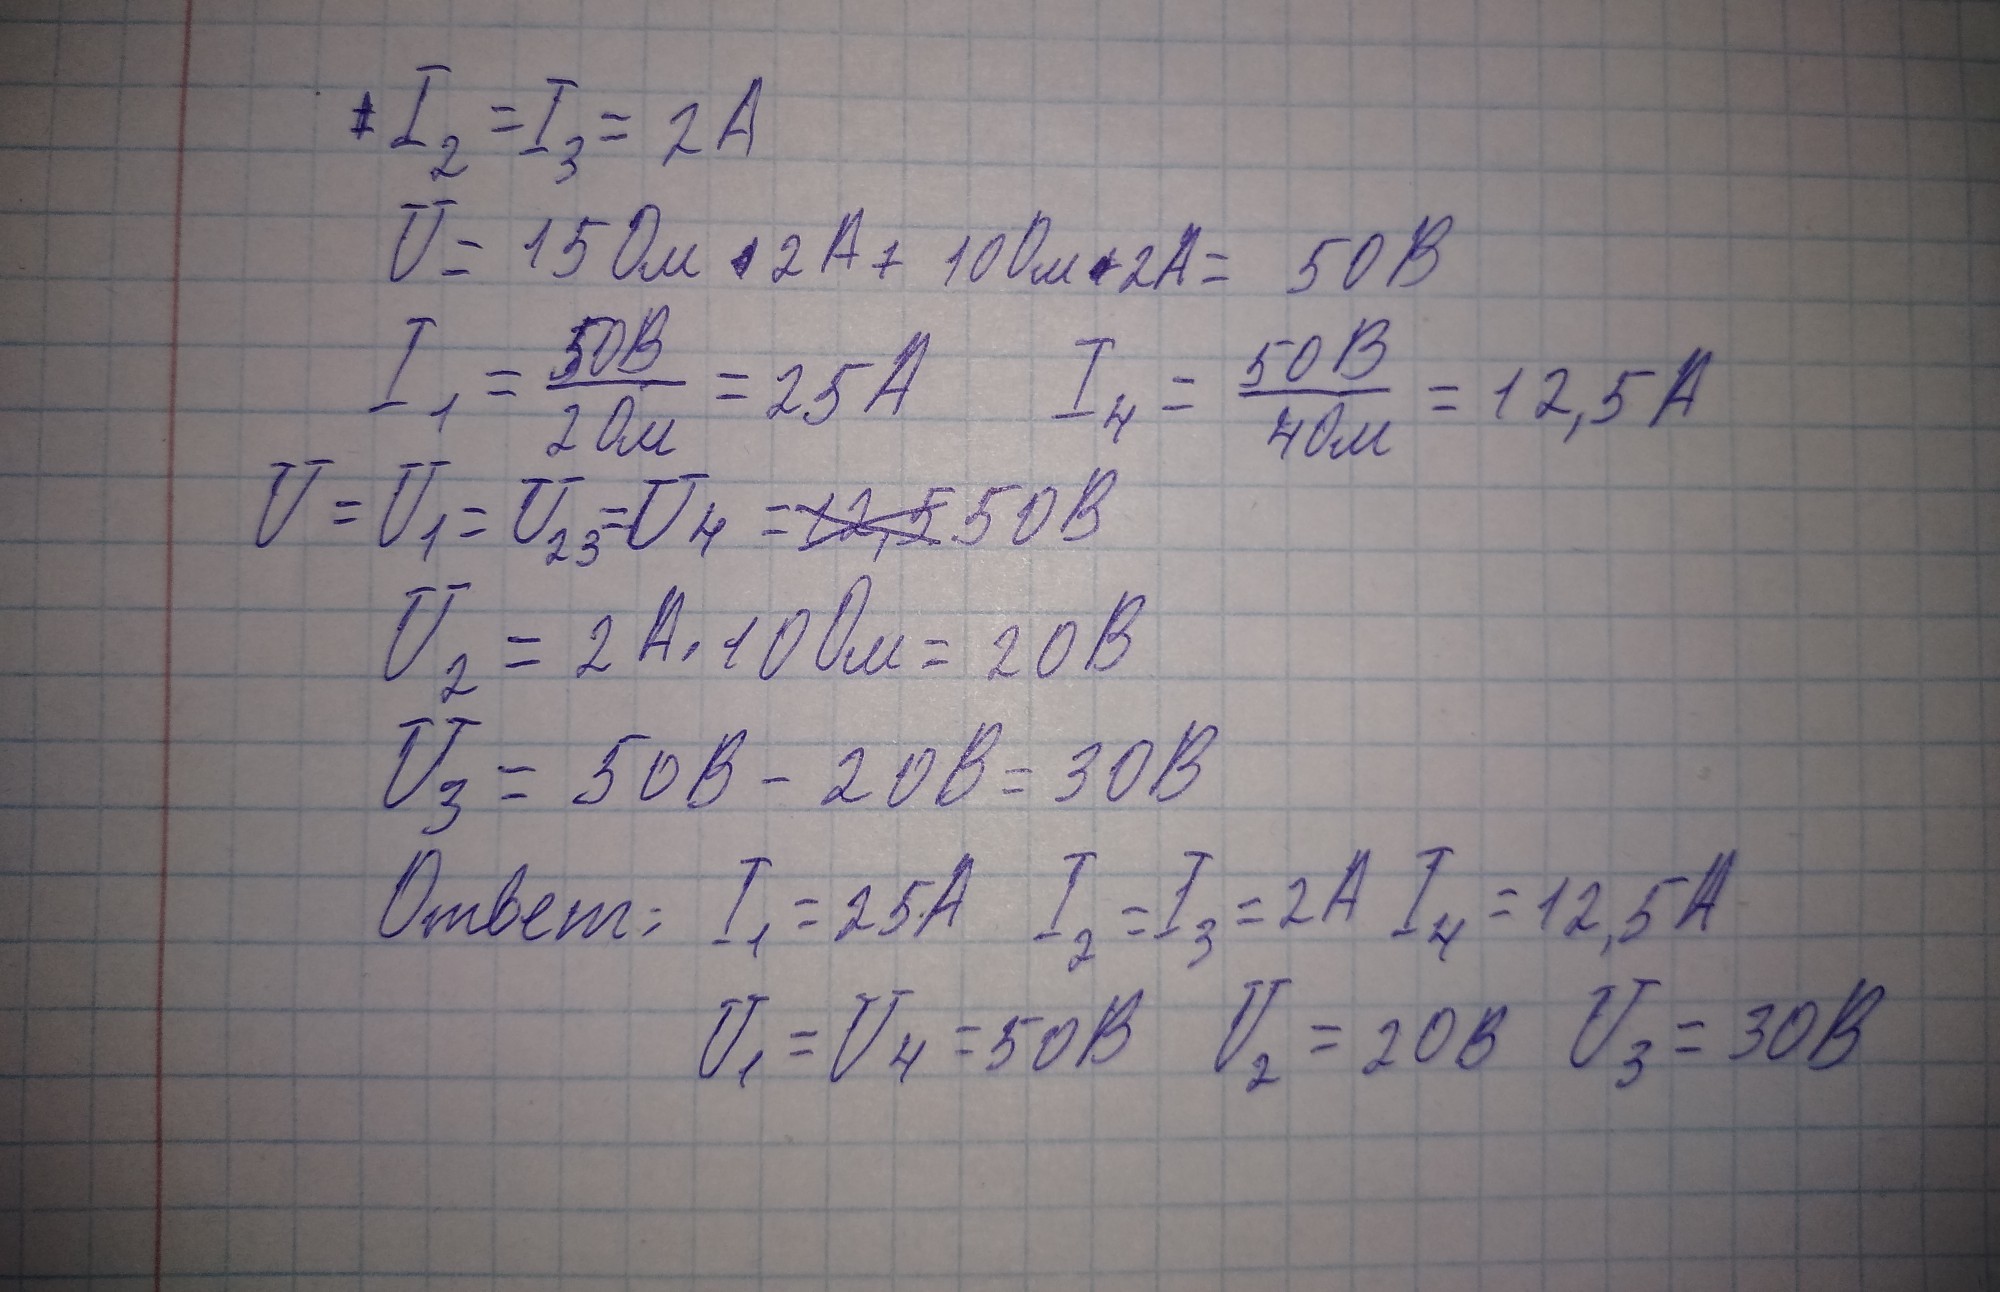 I₂ = I₃ = 2А
U = 15 Ом · 2А + 10 Ом · 2А = 50В
I₁ = 50В / 2 Ом = 25А I₄ = 50В / 4 Ом = 12,5А
U = U₁ = U₂₃ = U₄ = ~~12,5~~ 50В
U₂ = 2А · 10 Ом = 20В
U₃ = 50В - 20В = 30В
Ответ: I₁ = 25А I₂ = I₃ = 2А I₄ = 12,5А
U₁ = U₄ = 50В U₂ = 20В U₃ = 30В